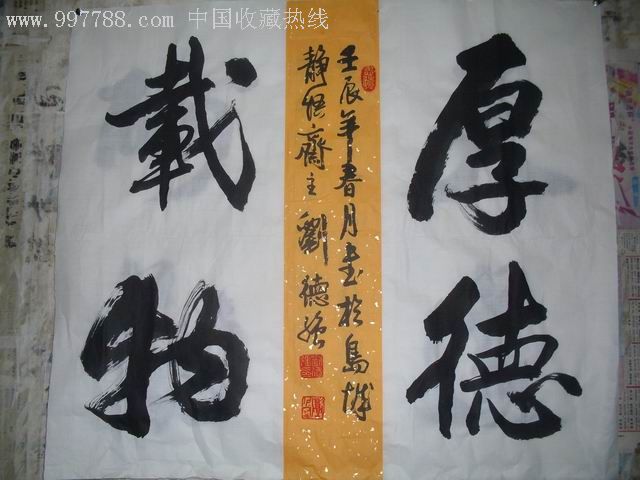 www.997788.com 中国收藏热线
厚德
載物
壬辰年春月书於島城
静悟齋主劉德強